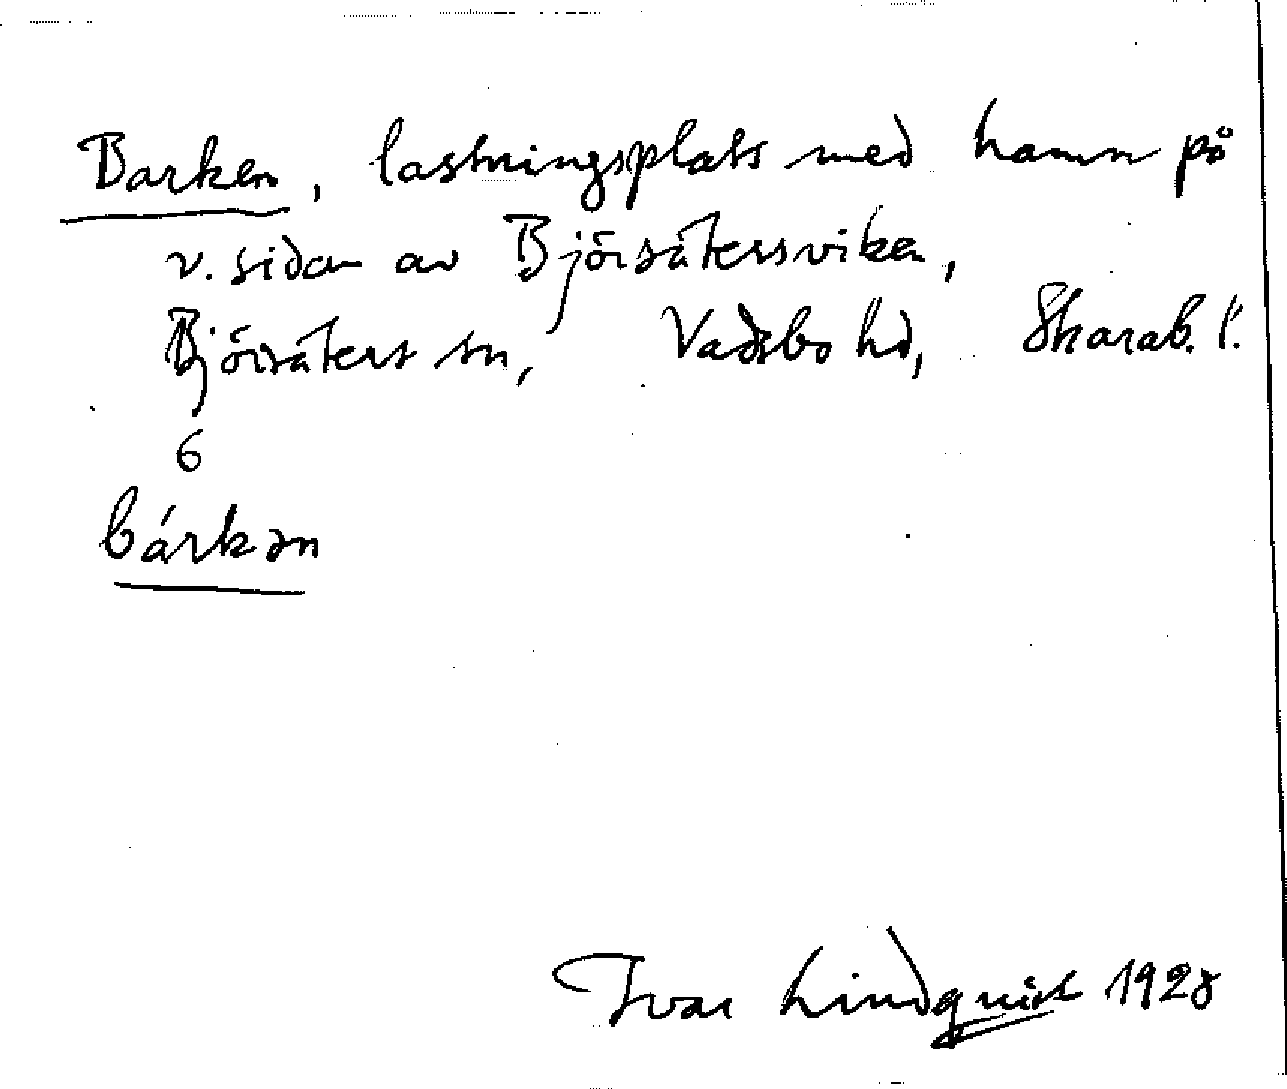 Barken, lastningsplats med hamn på
v. sidan av Björsätersviken,
Björsäters sn, Vadsbo hd, Skarab. l.
6
bárkən
Ivar Lindquist 1928